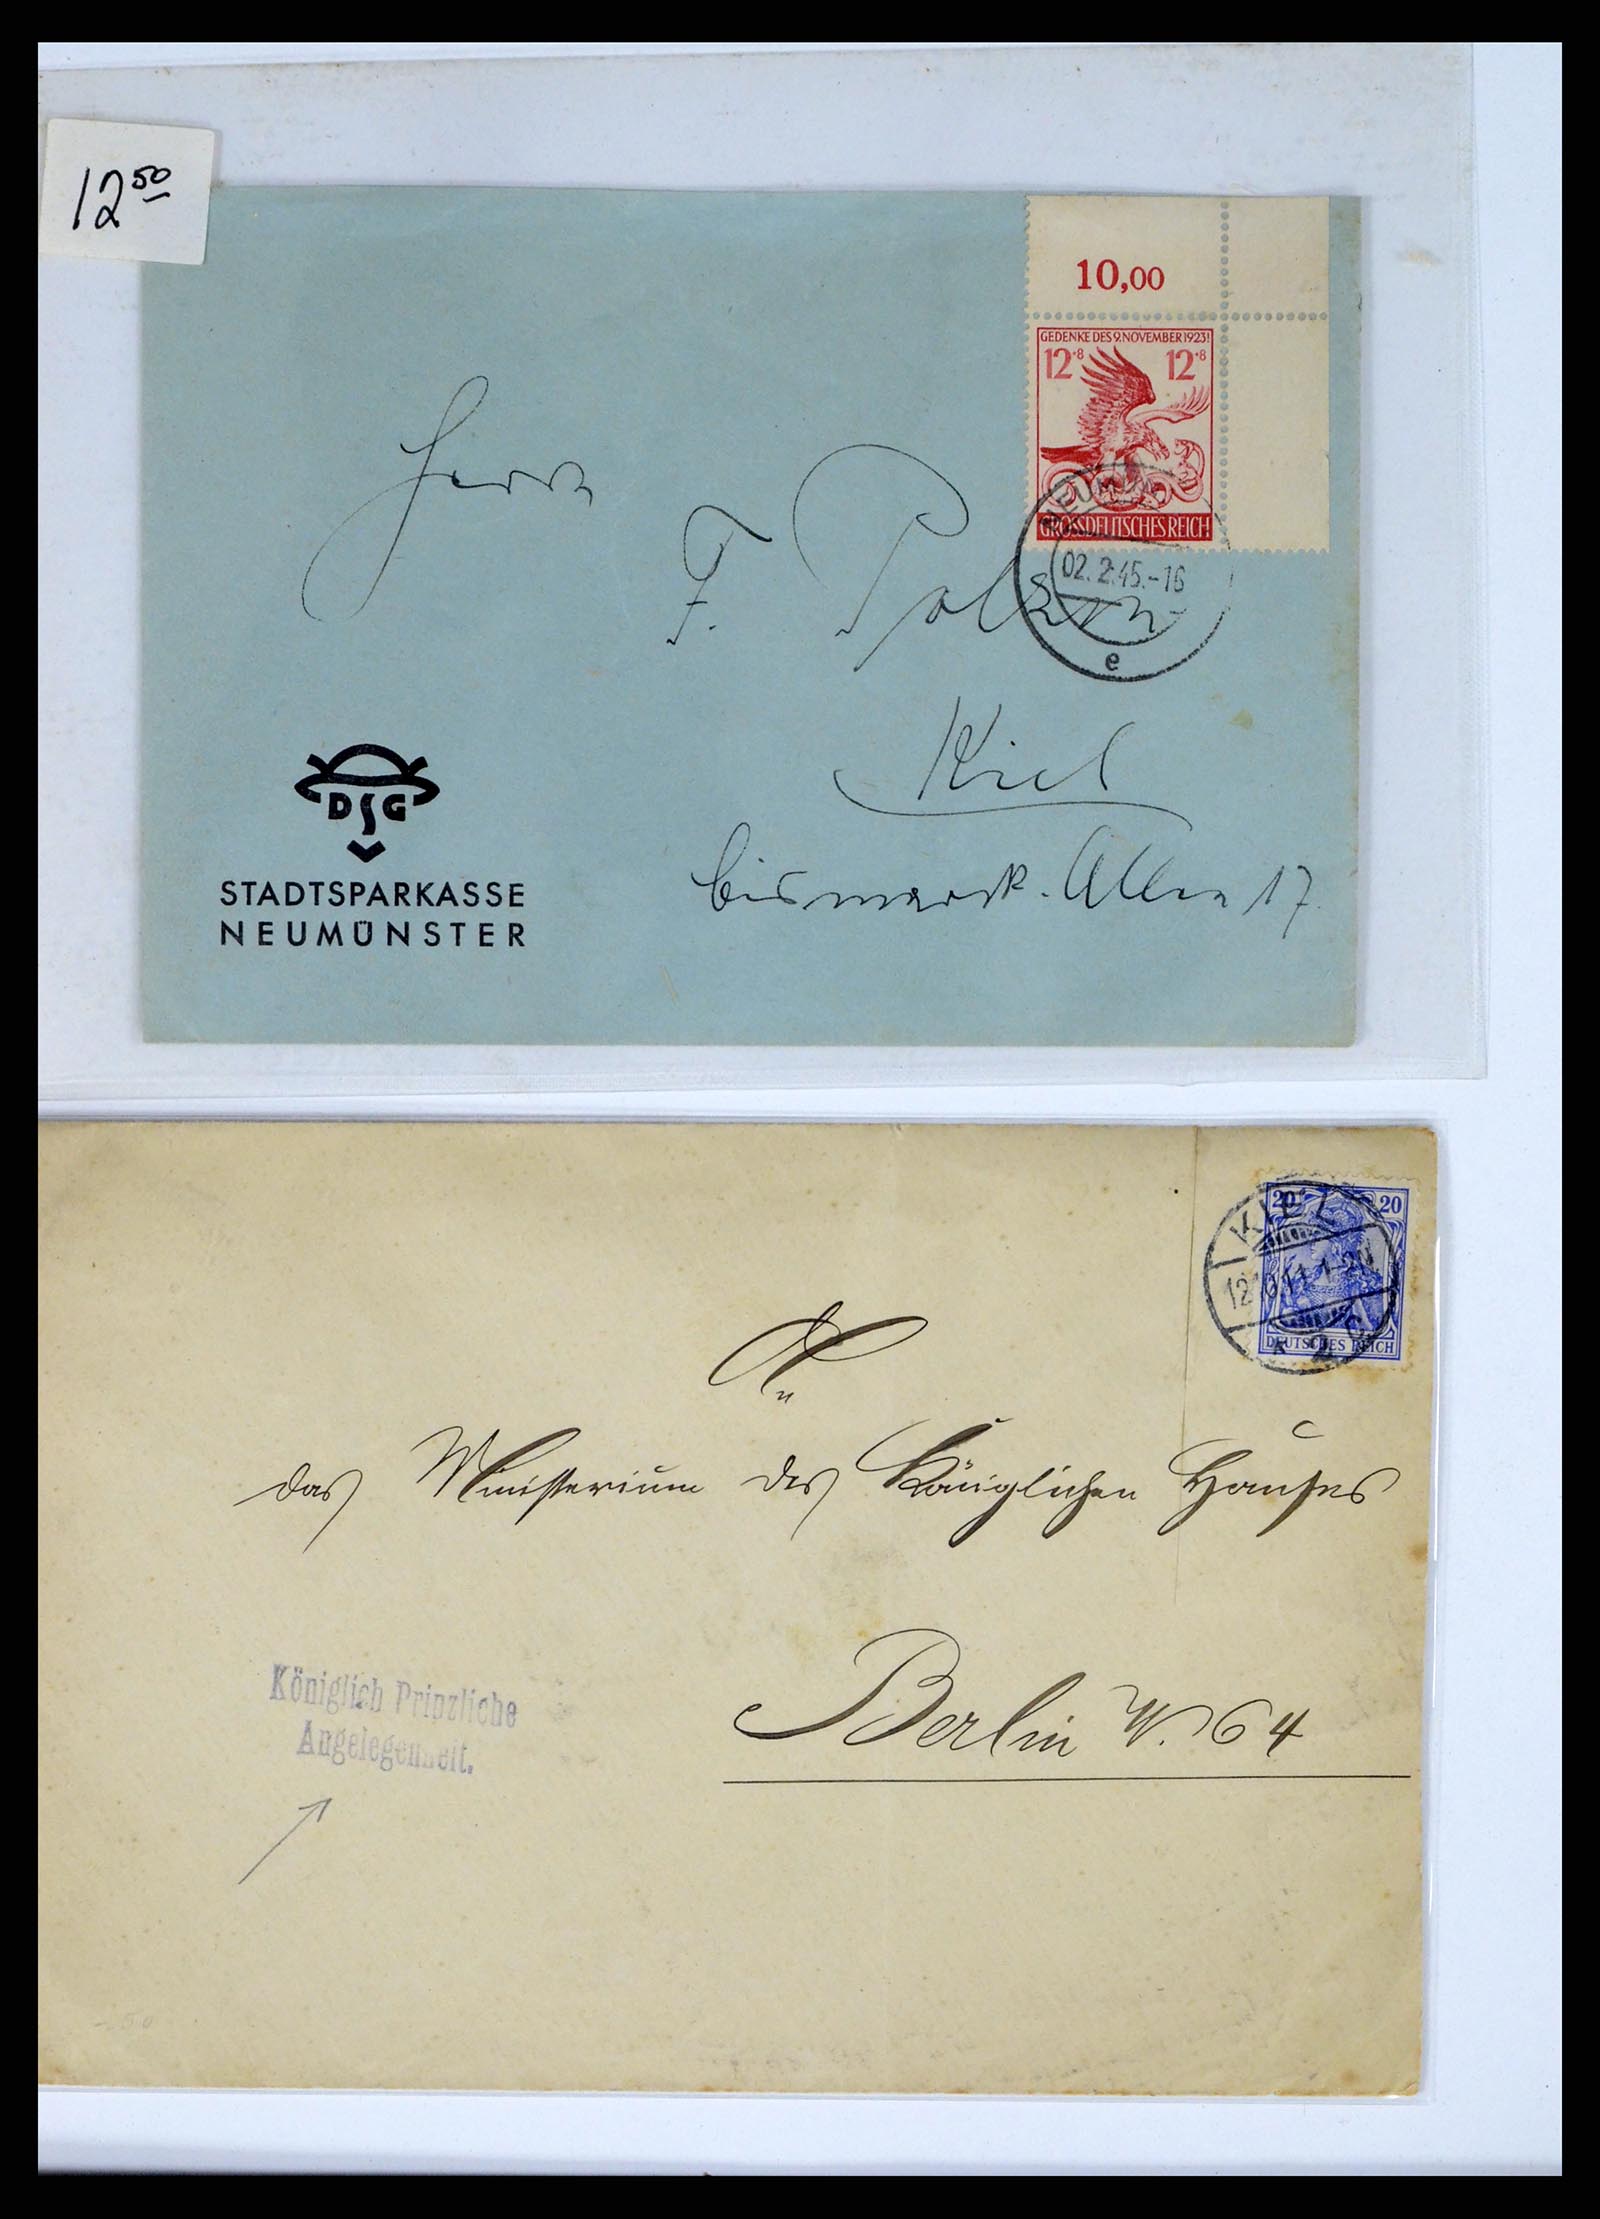 12 50
10,00
GEDENKE DES 9. NOVEMBER 1923!
12+8 12+8
GROSSDEUTSCHES REICH
NEUMÜN
02.2.45.-16
e
Herrn
F. Polzin
Kiel
Bismarck-Allee 17.
DSG
STADTSPARKASSE
NEUMÜNSTER
20 20
KIEL
12.10.11.1-2N
DEUTSCHES REICH
An
das Ministerium des Königlichen Hauses
Berlin W. 64
Königlich Prinzliche
Angelegenheit.